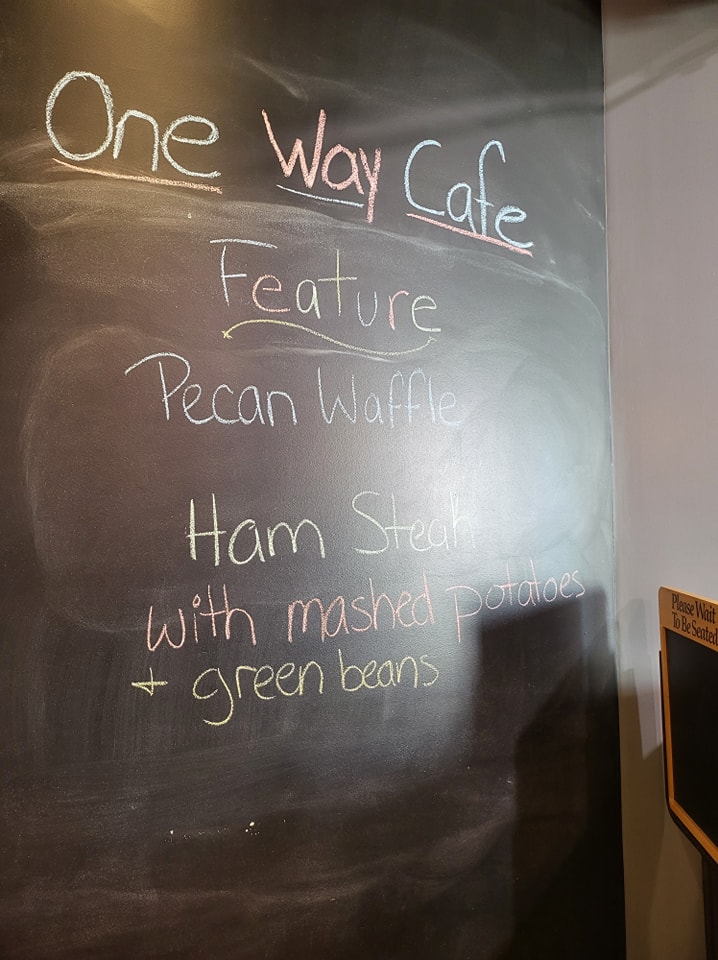 One Way Cafe
Feature
Pecan Waffle
Ham Steak
with mashed potatoes
+ green beans
Please Wait
To Be Seated